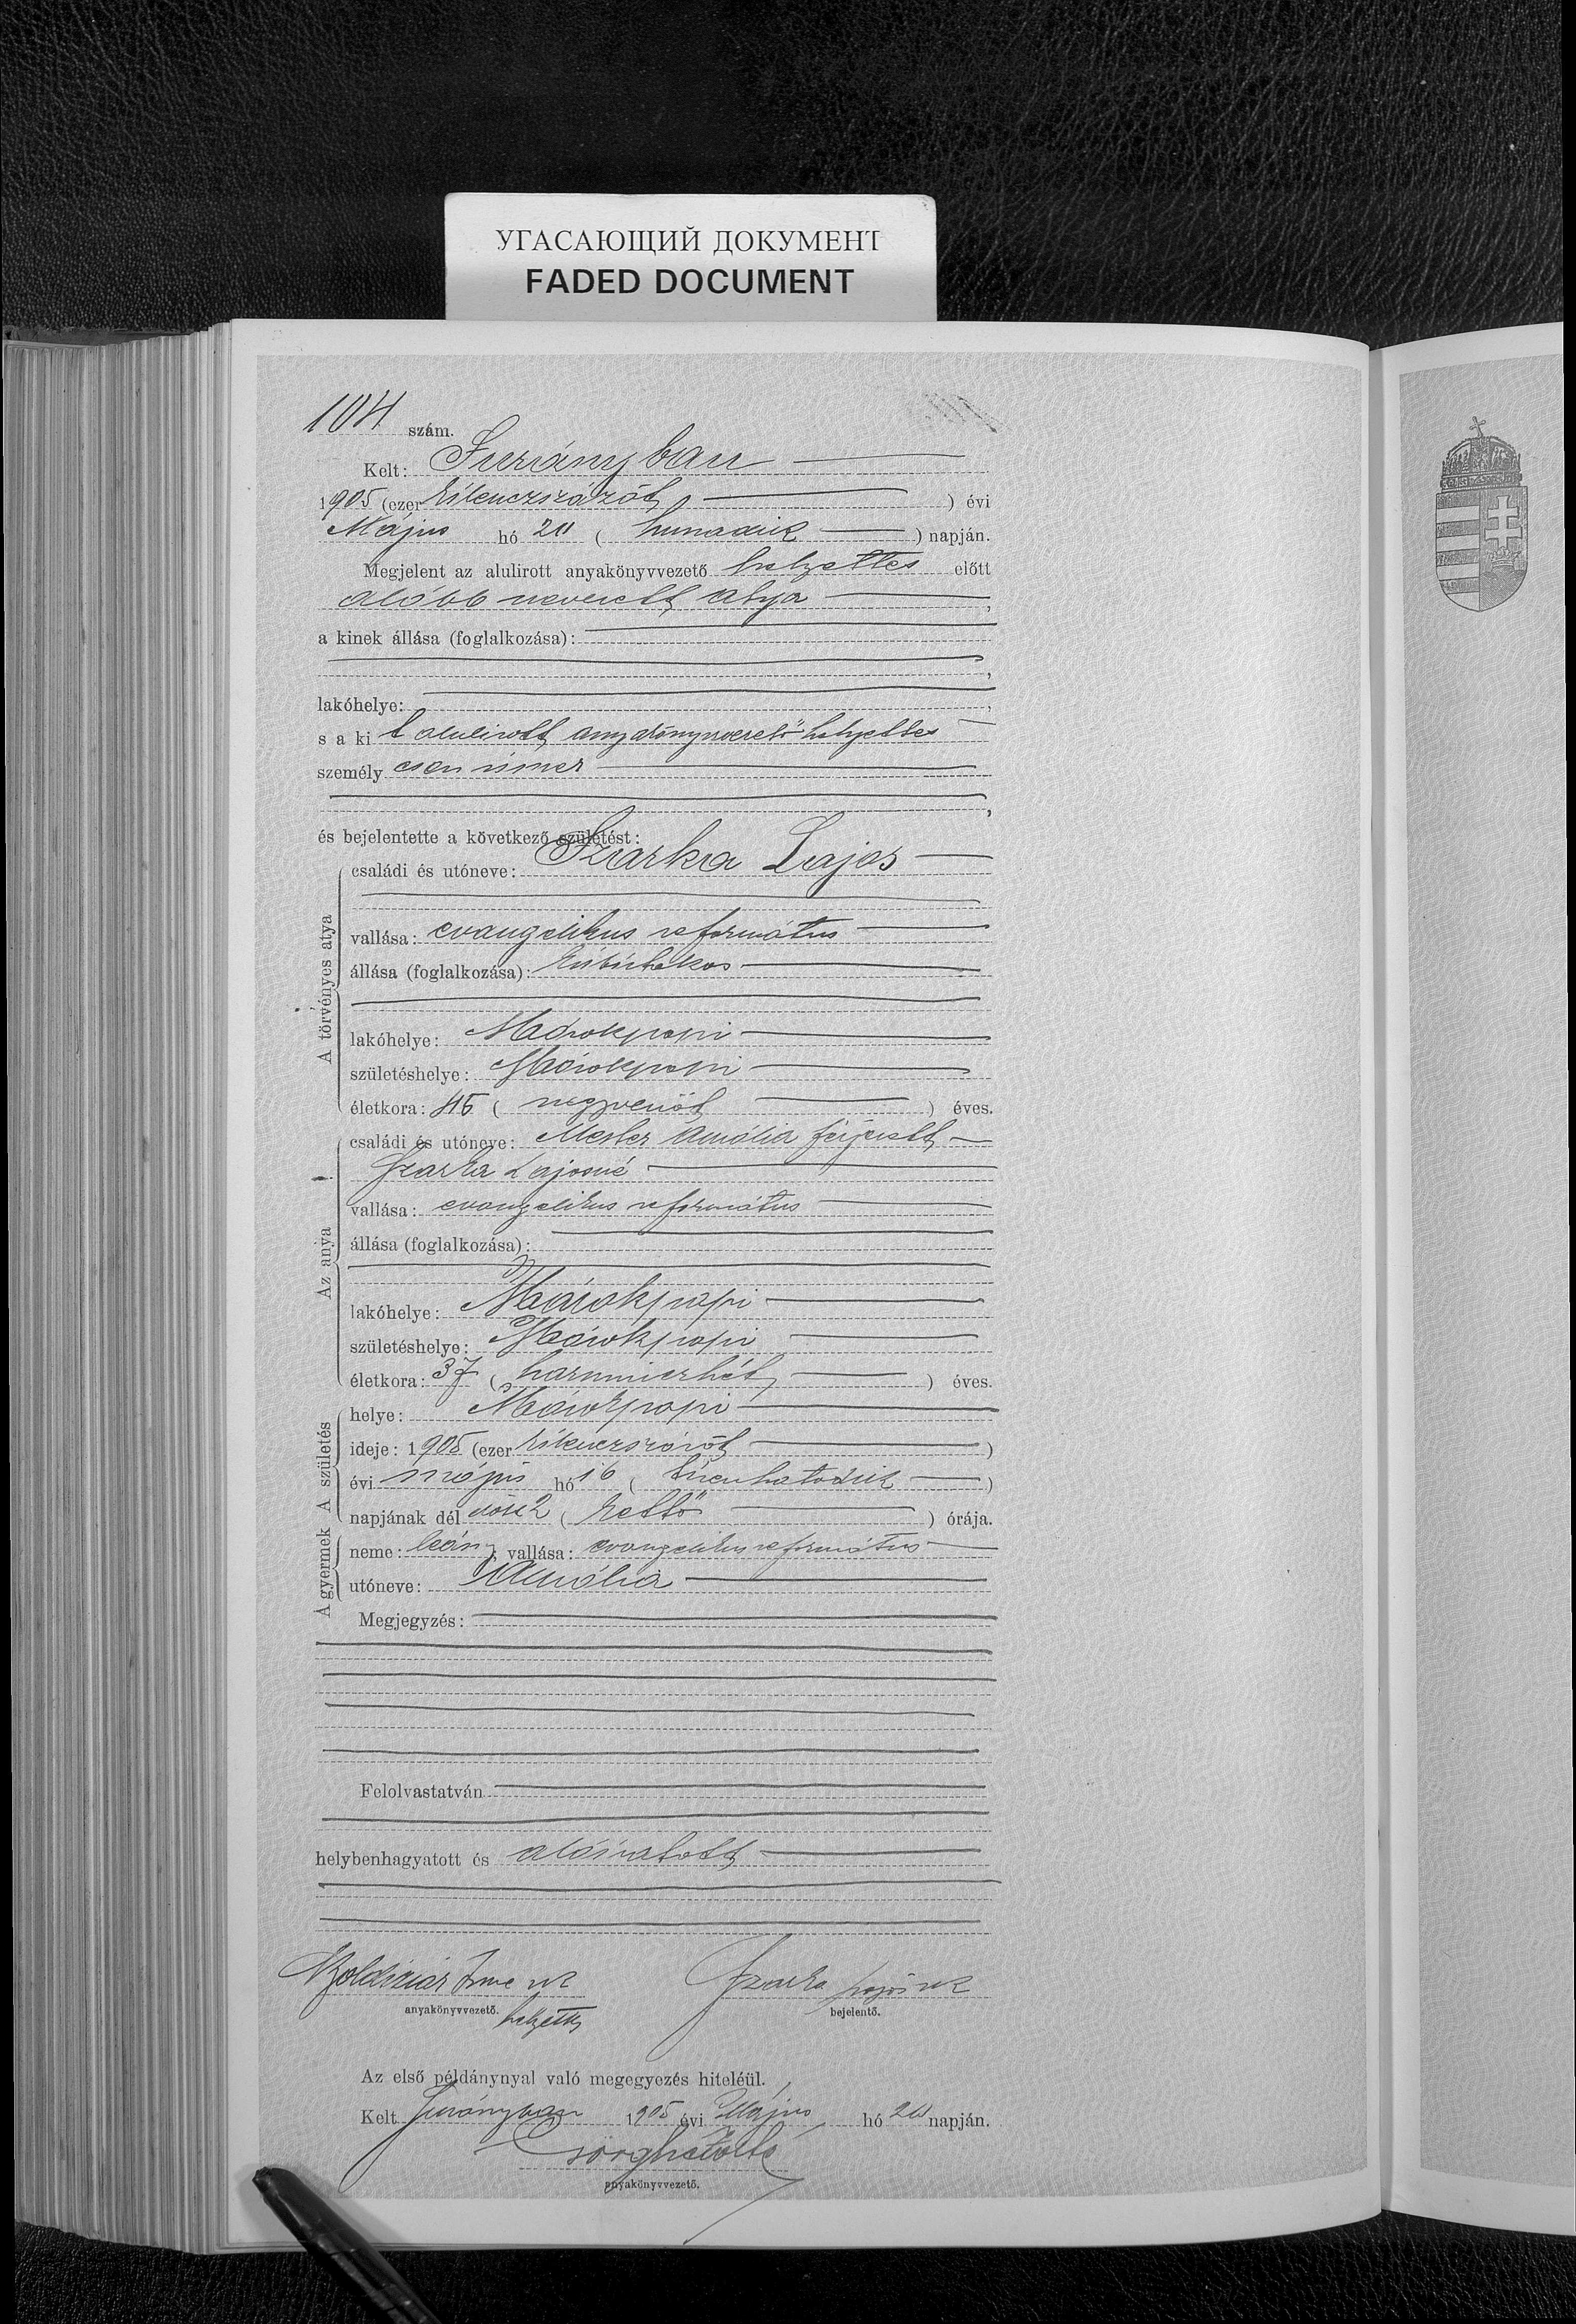 УГАСАЮЩИЙ ДОКУМЕНТ
FADED DOCUMENT
104 szám.
Kelt: Surányban
1905 (ezer kilenczszázöt) évi
Május hó 20 (huszadik) napján.
Megjelent az alulirott anyakönyvvezető helyettes előtt
alább nevezett atya,
a kinek állása (foglalkozása):
lakóhelye:
s a ki t alulirott anyakönyvvezető helyettes
személy esen ismer
és bejelentette a következő születést:
A törvényes atya
családi és utóneve: Szarka Lajos
vallása: evangelikus református
állása (foglalkozása): kisbirtokos
lakóhelye: Márokpapi
születéshelye: Márokpapi
életkora: 45 (negyvenöt) éves.
Az anya
családi és utóneve: Mester Amália férjezett
Szarka Lajosné
vallása: evangelikus református
állása (foglalkozása):
lakóhelye: Márokpapi
születéshelye: Márokpapi
életkora: 37 (harminczhét) éves.
A születés
helye: Márokpapi
ideje: 1905 (ezer kilenczszázöt)
évi május hó 16 (tizenhatodik)
napjának dél előtt 2 (kettő) órája.
A gyermek
neme: leány, vallása: evangelikus református
utóneve: Amália
Megjegyzés:
Felolvastatván
helybenhagyatott és aláiratott
Boldizsár Imre sk Szarka Lajos sk
anyakönyvvezető. helyettes bejelentő.
Az első példánynyal való megegyezés hiteléül.
Kelt Surányban 1905 évi Május hó 20 napján.
anyakönyvvezető.